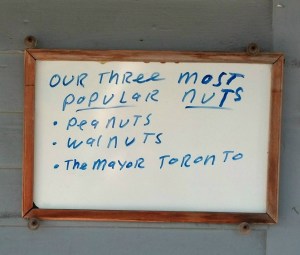 OUR THREE MOST
POPULAR NUTS
• PEANUTS
• WALNUTS
• THE MAYOR TORONTO